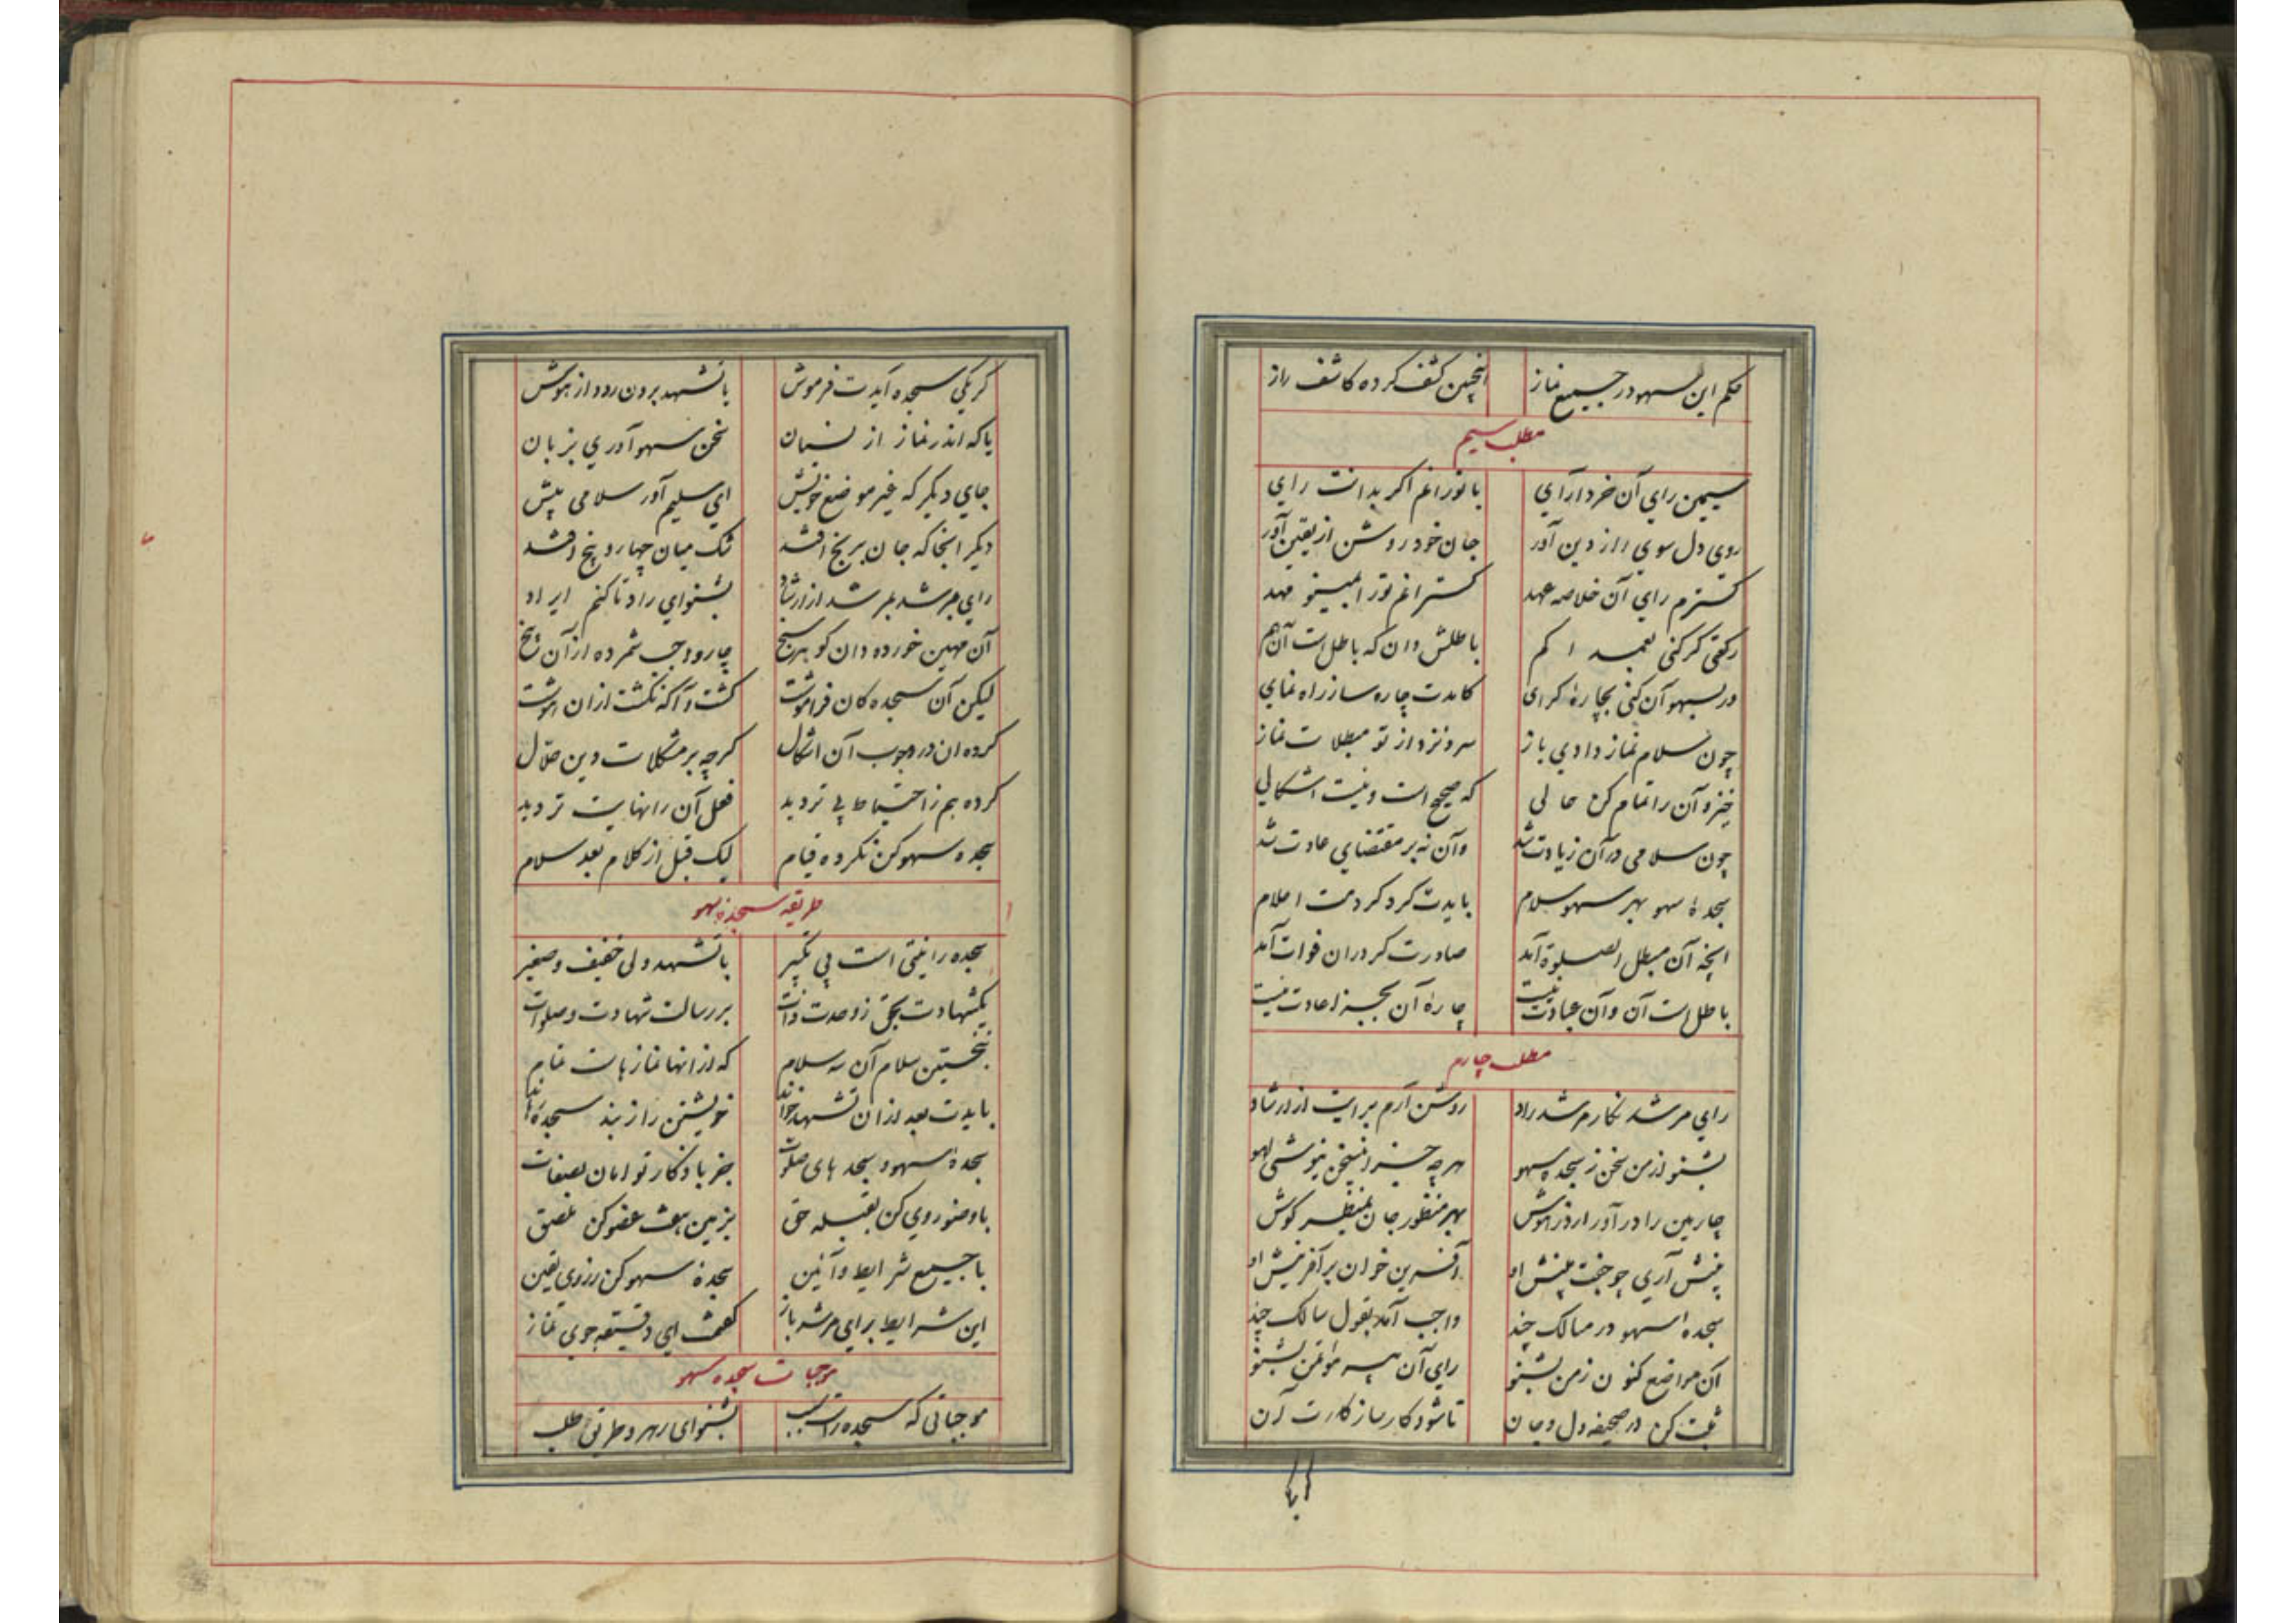 حکم این سهو در جمیع نماز اینچنین کشف کرده کاشف راز
مطلب سیم
سیمین رای آن خرد ارآرای با تو رانم اگر بدانت رای
روی دل سوی راز دین آور جان خود روشن از یقین آور
کسترم رای آن خلاصه عهد کسترانم تو را مهد
رکنی کر کنی بعمد کم باطلش دان که باطل است آن هم
ور بسهو آن کنی بچاره کرای کامدت چاره ساز راه نمای
چون سلام نماز دادی باز سر نزد از تو مبطلات نماز
خیز و آن را تمام کن حالی که صحیح است و نیست اشکالی
چون سلامی در آن زیادت شد وآن نه بر مقتضای عادت شد
سجدۀ سهو بهر سهو سلام بایدت کرد کردمت اعلام
انچه آن مبطل الصلوة آمد صادرت کر دران فوات آمد
باطل است آن وآن عبادت نیست چارۀ آن بجز اعادت نیست
مطلب چارم
رای مرشد نکارم مرشد راد روشن آرم برایت از ارشاد
بشنو از من سخن ز سجده سهو هر چه جز این سخن نیوشی لهو
چارمین را در آور از در هوش بهر منظور جان کوش
پیش آری چو جفت بینش او آفرین خوان بر آفرینش او
سجده سهو در مسالک چند واجب آمد بقول سالک چند
آن مواضع کنون ز من بشنو رای آن بشنو
ثبت کن در صحیفه دل و جان تا شود کارساز کارت آن
یا
کر یکی سجده آیدت فرموش با تشهد برون رود از هوش
یا که اندر نماز از نسیان سخن سهو آوری بزبان
جای دیگر که غیر موضع خویش ای سلیم آور سلامی پیش
دیگر انجا که جان برنج افتد شک میان چهار و پنج افتد
رای مرشد مرشد از ارشاد بشنو ای راد تا کنم ایراد
آن مهین خورده دان کو هر سنج چار واجب شمرده از آن پنج
لیکن آن سجده کان فراموشت کشت و آگه نکشت ازان هوشت
کرده ان در وجوب آن اشکال کرچه بر مشکلات دین حلال
کرده هم ز احتیاط بی تردید فعل آن را نهایت تردید
سجده سهو کن نکرده قیام لیک قبل از کلام بعد سلام
طریقه سجده سهو
سجده را نیتی است بی تکبیر با تشهد ولی خفیف و صغیر
یکشهادت بحق ز وحدت ذات بر رسالت شهادت و صلوات
نخستین سلام آن سه سلام که از انها نماز هات تمام
بایدت بعد ازان تشهد خواند خویشتن را ز بند سجده رهاند
سجدۀ سهو و سجد های صلوت جز باذکار توامان بصفات
با وضو روی کن بقبله حق بزمین هفت عضو کن ملصق
با جمیع شرایط و آئین سجدۀ سهو کن ز روی یقین
این شرایط برای مرشد باز کفتمت ای دقیقه جوی نماز
موجبات سجده سهو
موجباتی که سجده راست سبب بشنو ای رهرو طریق طلب